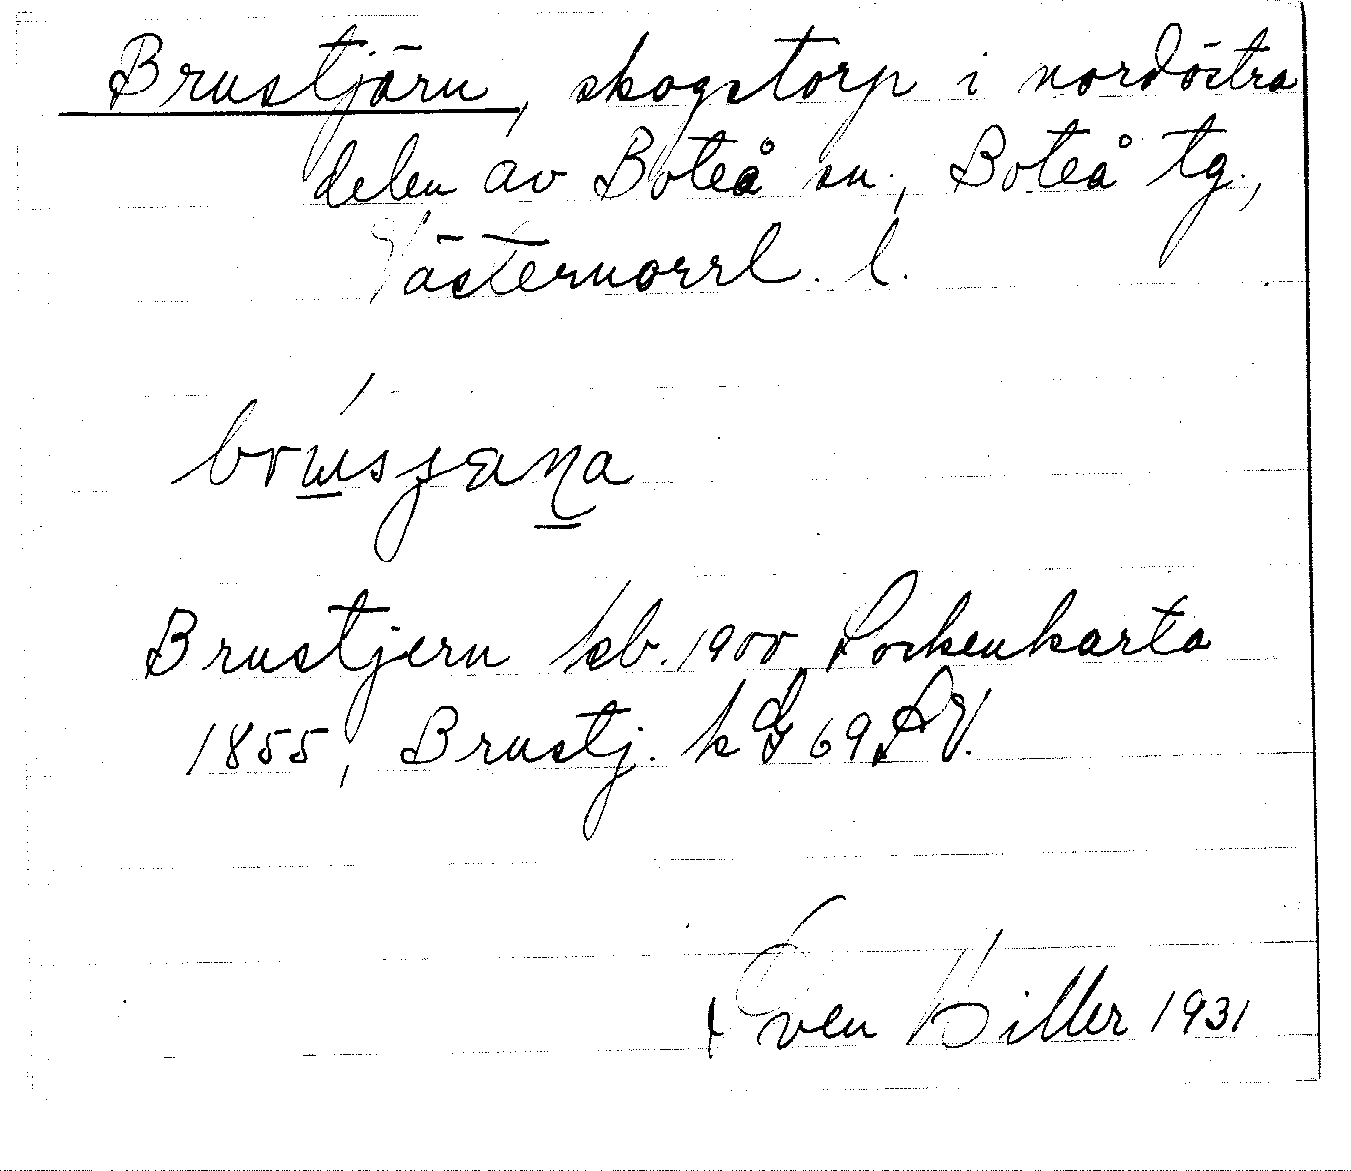 Brustjärn, skogstorp i nordöstra
delen av Boteå sn., Boteå tg.,
Västernorrl. l.
Brustjern kb. 1900, Sockenkarta
1855, Brustj. k G 69 SV.
Sven Hiller 1931